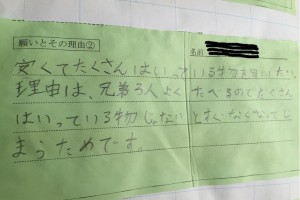 願いとその理由②
名前
安くてたくさんはいっている物を買いたい
理由は、兄弟3人よくたべるのでたくさん
はいっている物じゃないとすぐなくなってし
まうためです。